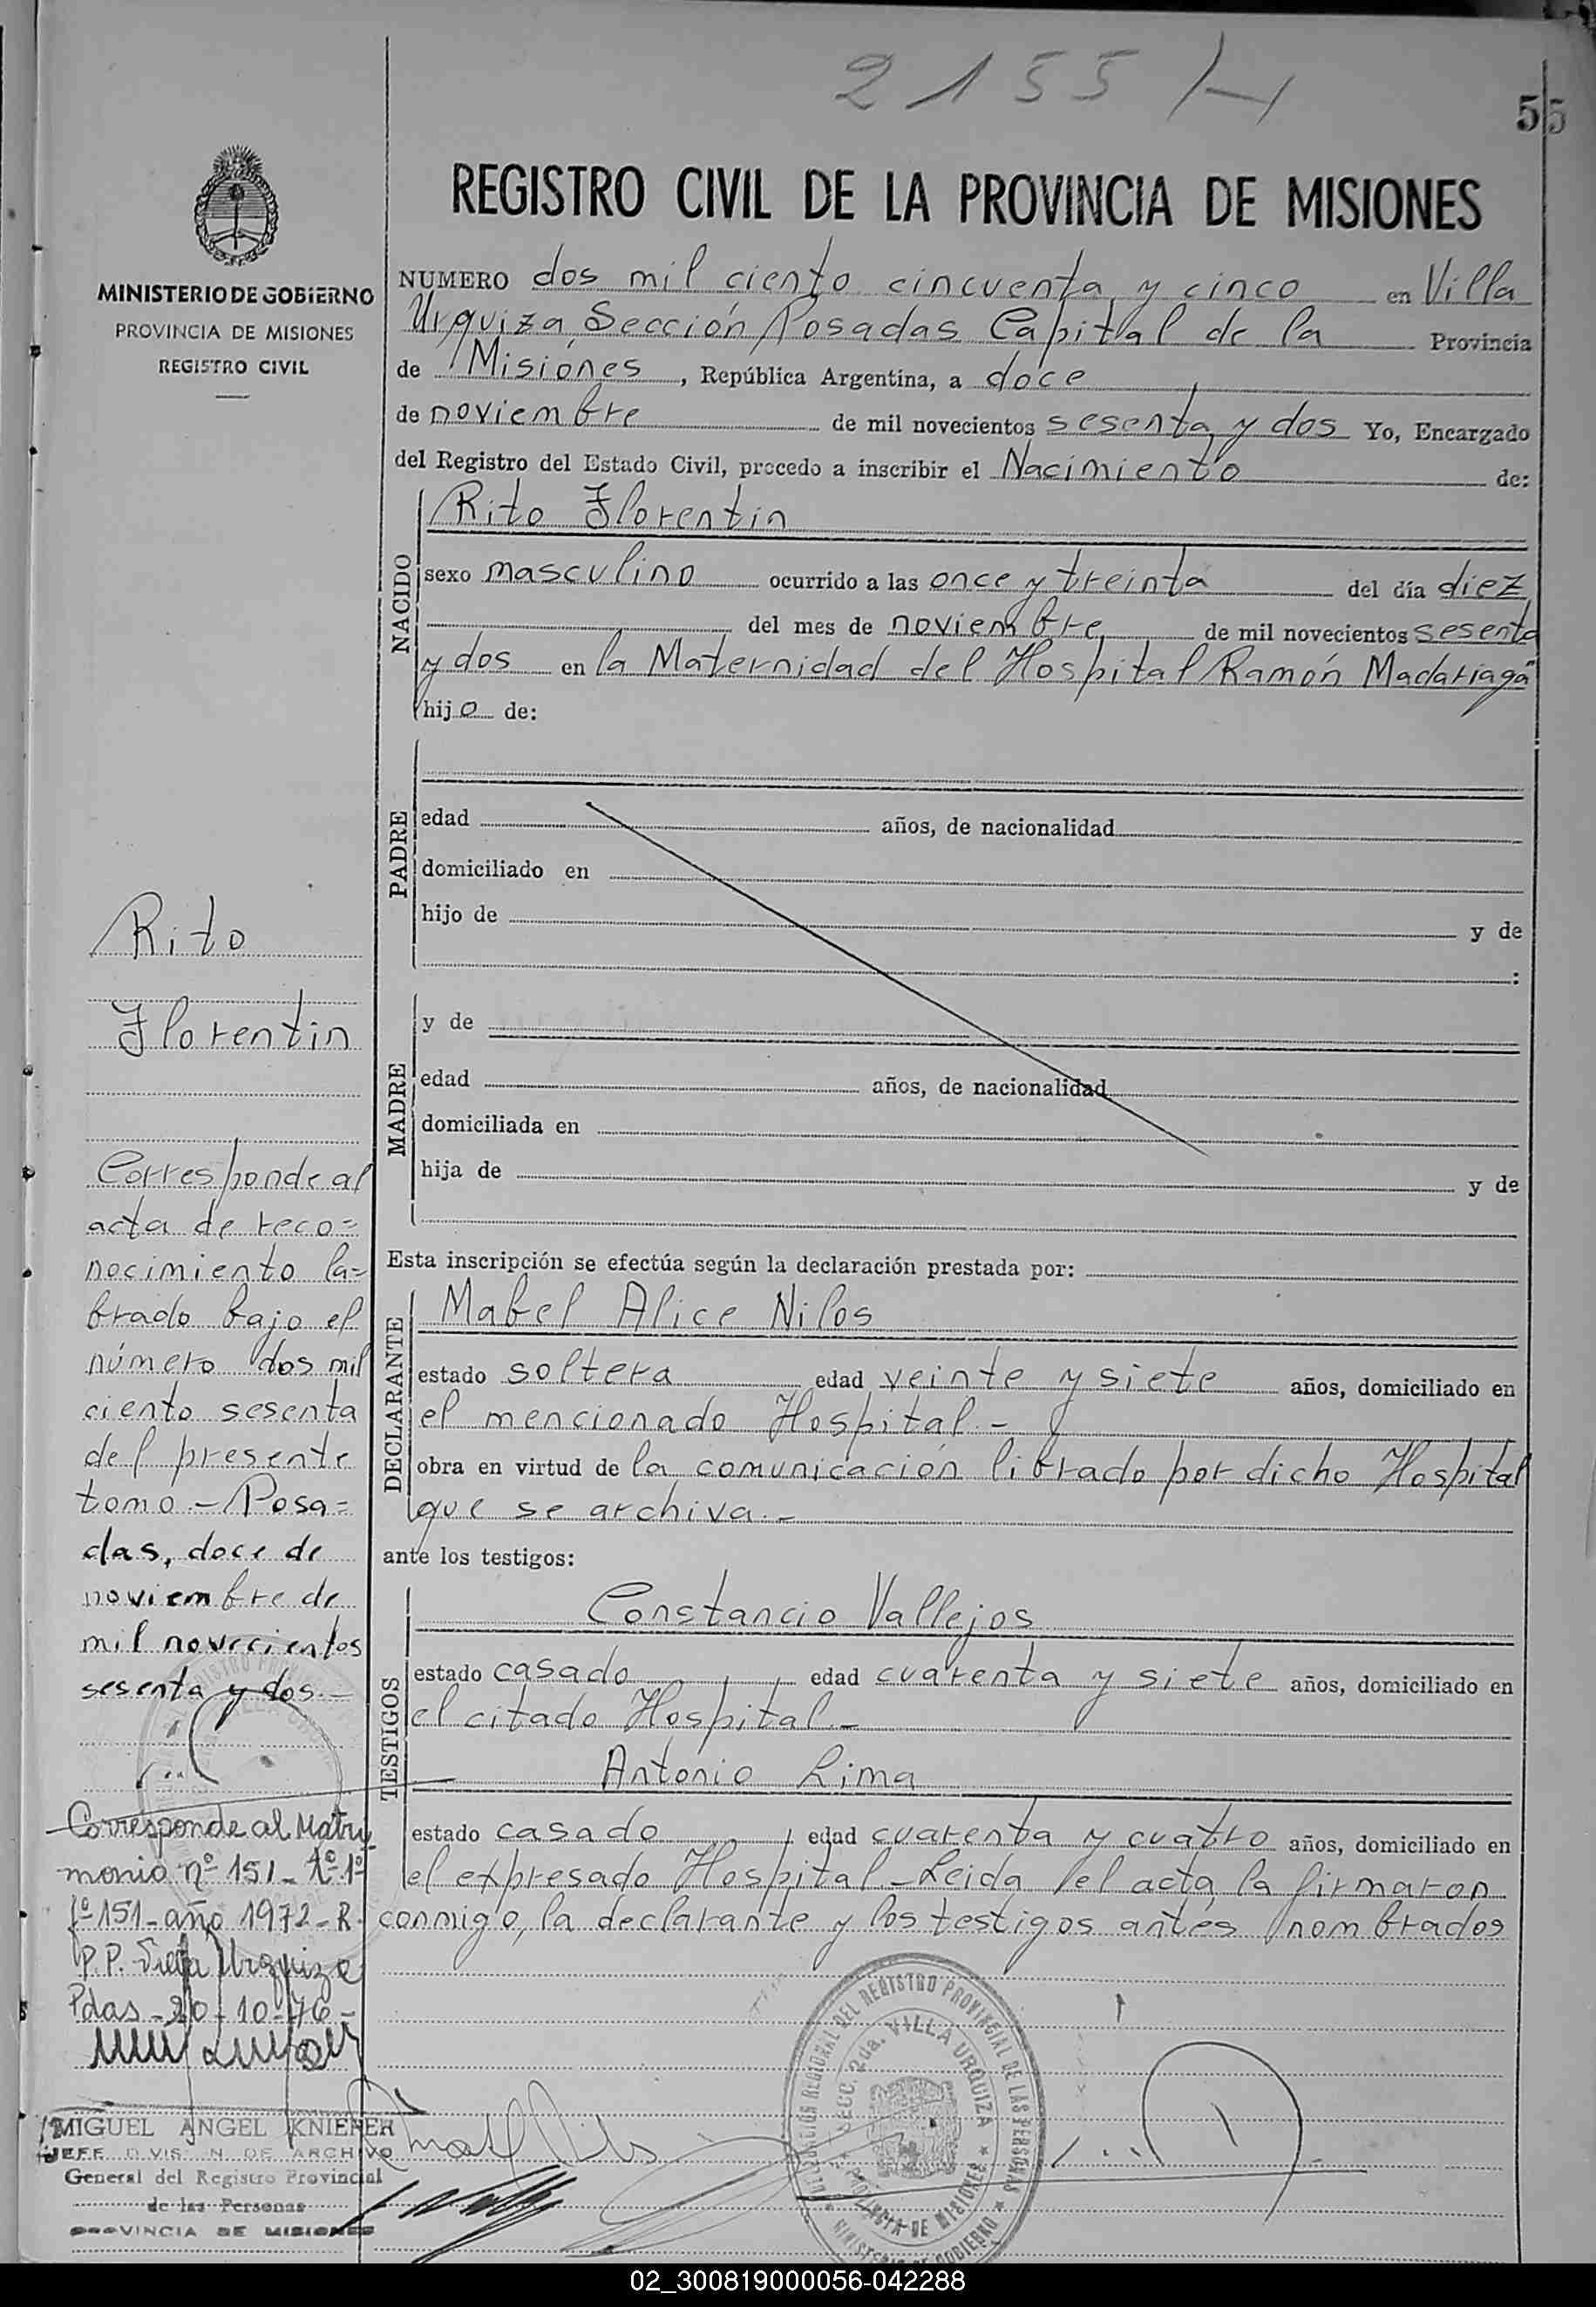 2155
55
REGISTRO CIVIL DE LA PROVINCIA DE MISIONES
MINISTERIO DE GOBIERNO
PROVINCIA DE MISIONES
REGISTRO CIVIL
NUMERO dos mil ciento cincuenta y cinco en Villa
Urquiza Sección Posadas Capital de la Provincia
de Misiones, República Argentina, a doce
de noviembre de mil novecientos sesenta y dos Yo, Encargado
del Registro del Estado Civil, procedo a inscribir el Nacimiento de:
NACIDO
Rito Florentin
sexo masculino ocurrido a las once y treinta del día diez
del mes de noviembre de mil novecientos sesenta
y dos en la Maternidad del Hospital Ramón Madariaga"
hijo de:
PADRE
edad años, de nacionalidad
domiciliado en
hijo de y de
:
MADRE
y de
edad años, de nacionalidad
domiciliada en
hija de y de
Esta inscripción se efectúa según la declaración prestada por:
DECLARANTE
Mabel Alice Nilos
estado soltera edad veinte y siete años, domiciliado en
el mencionado Hospital.-
obra en virtud de la comunicación librado por dicho Hospital
que se archiva.-
ante los testigos:
TESTIGOS
Constancio Vallejos
estado casado edad cuarenta y siete años, domiciliado en
el citado Hospital.-
Antonio Lima
estado casado, edad cuarenta y cuatro años, domiciliado en
el expresado Hospital.-Leida el acta la firmaron
conmigo, la declarante y los testigos antes nombrados
Rito
Florentin
Corresponde al
acta de reco=
nocimiento la=
brado bajo el
número dos mil
ciento sesenta
del presente
tomo.-Posa=
das, doce de
noviembre de
mil novecientos
sesenta y dos.-
Corresponde al Matri
monio nº 151-tº 1º
fº 151-año 1972-R.
P.P. Villa Urquiza
Pdas-20-10-76-
MIGUEL ANGEL KNIERER
JEFE DIVISION DE ARCHIVO
General del Registro Provincial
de las Personas
PROVINCIA DE MISIONES
DELEGACION REGIONAL DEL REGISTRO PROVINCIAL DE LAS PERSONAS
SECC. 2da. VILLA URQUIZA
PROVINCIA DE MISIONES
MINISTERIO DE GOBIERNO
02_300819000056-042288